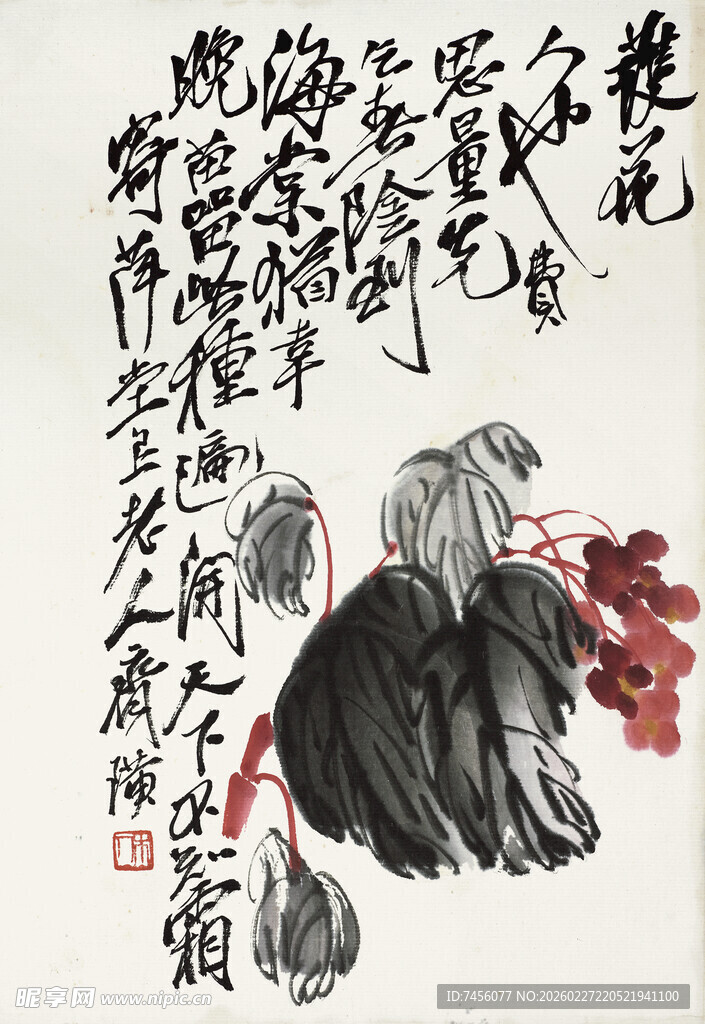 護花
人也費
思量先
乞春陰到
海棠猶幸
晚苗留此種遍開天下不知霜
寄萍堂上老人齊璜
木人
昵享网 www.nipic.cn
ID:7456077 NO:20260227220521941100